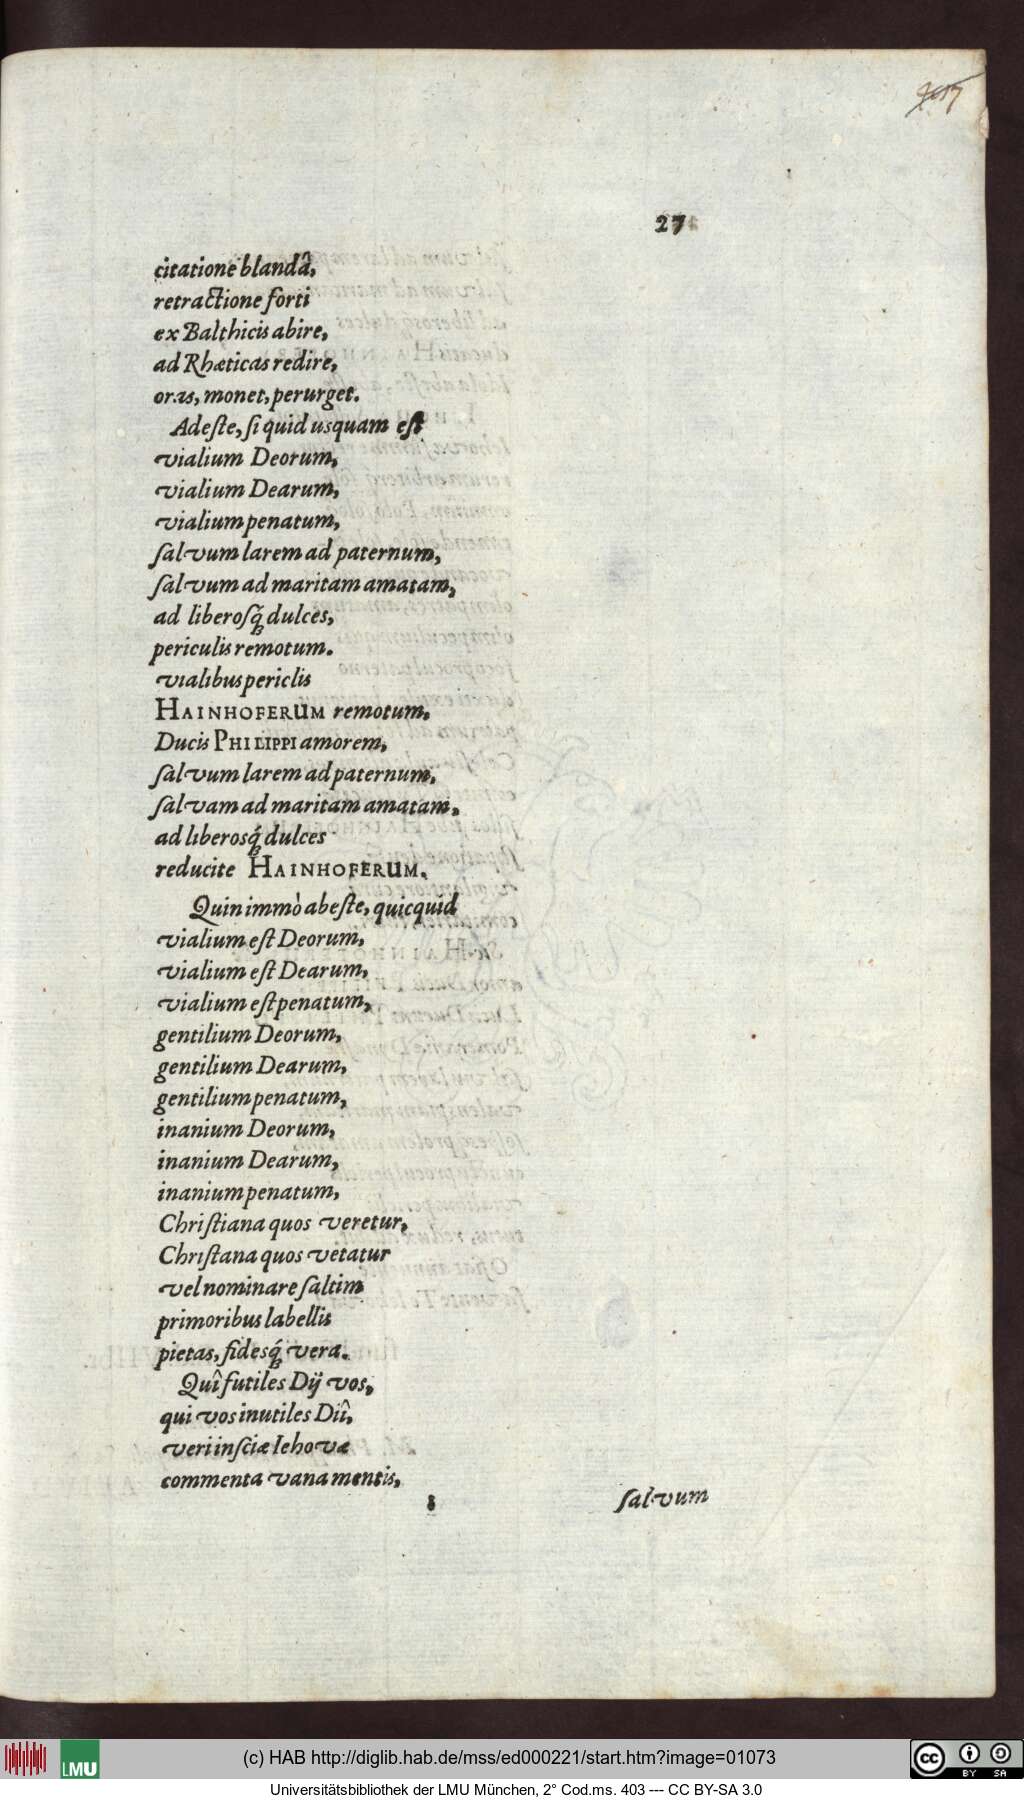 27
citatione blandâ,
retractione forti
ex Balthicis abire,
ad Rhæticas redire,
oras, monet, perurget.
Adeſte, ſi quid usquam eſt
vialium Deorum,
vialium Dearum,
vialium penatum,
ſalvum larem ad paternum,
ſalvum ad maritam amatam,
ad liberoſq́; dulces,
periculis remotum.
vialibus periclis
HAINHOFERUM remotum,
Ducis PHILIPPI amorem,
ſalvum larem ad paternum,
ſalvam ad maritam amatam,
ad liberosq́; dulces
reducite HAINHOFERUM.
Quin immò abeſte, quicquid
vialium eſt Deorum,
vialium eſt Dearum,
vialium eſt penatum,
gentilium Deorum,
gentilium Dearum,
gentilium penatum,
inanium Deorum,
inanium Dearum,
inanium penatum,
Chriſtiana quos veretur,
Chrıſtana quos vetatur
vel nominare ſaltim
primoribus labellis
pietas, fidesq́; vera.
Quî futiles Dij vos,
qui vos inutiles Diî,
veri inſciæ Iehovæ
commenta vana mentis,
ſalvum
(c) HAB http://diglib.hab.de/mss/ed000221/start.htm?image=01073
LMU
cc BY SA
Universitätsbibliothek der LMU München, 2° Cod.ms. 403 --- CC BY-SA 3.0